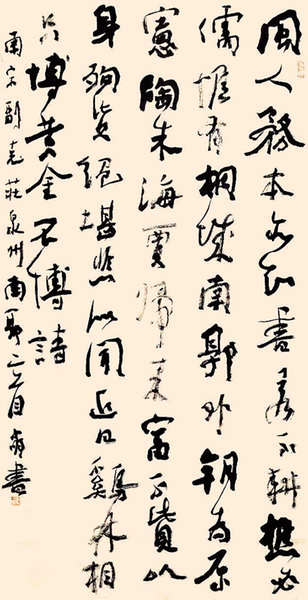 閩人務本亦知書若不耕樵必
儒惟有桐城南郭外朝為原
憲陶朱海賈歸來富不貲以
身殉貨絕堪悲似聞近日鷄林相
只博黃金不博詩
南宋劉克莊泉州南郭二首書